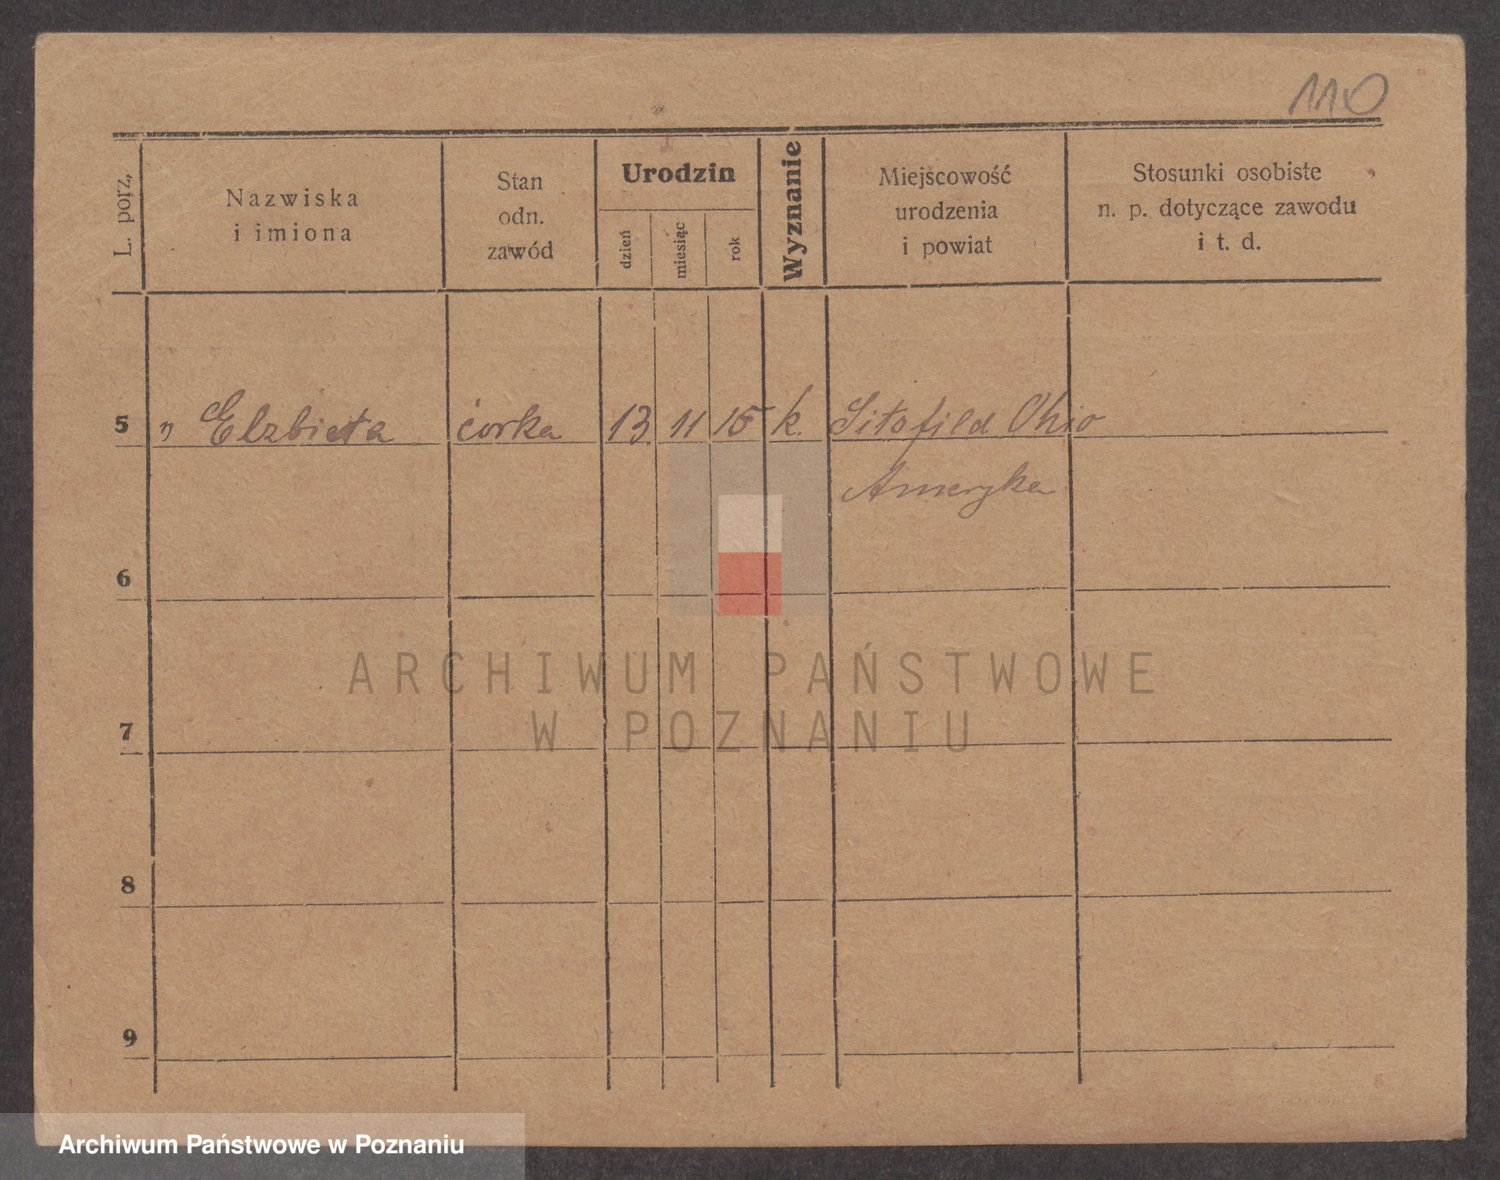 110
L. porz.
Nazwiska
i imiona
Stan
odn.
zawód
Urodzin
dzień
miesiąc
rok
Wyznanie
Miejscowość
urodzenia
i powiat
Stosunki osobiste
n. p. dotyczące zawodu
i t. d.
5 " Elzbieta córka 13 11 15 k. Sitsfild Ohio
Ameryka
6
7
8
9
ARCHIWUM PAŃSTWOWE
W POZNANIU
Archiwum Państwowe w Poznaniu